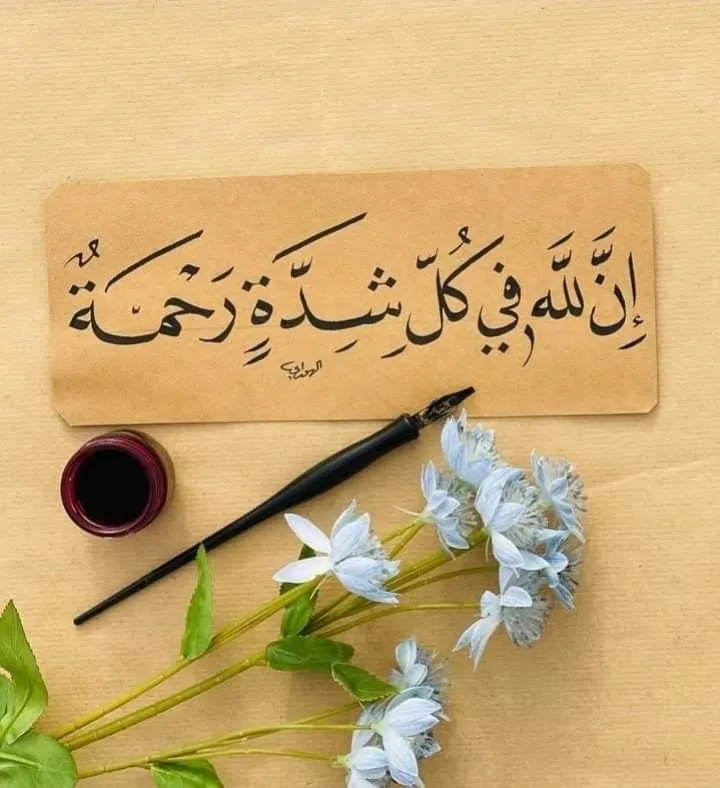 إِنَّ لِلَّهِ فِي كُلِّ شِدَّةٍ رَحْمَةٌ